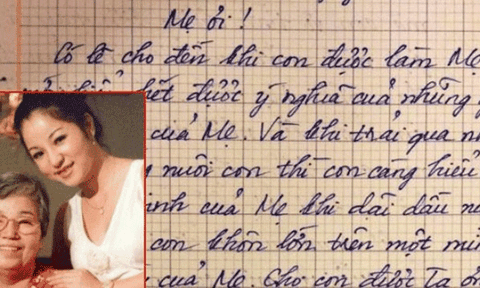 Mẹ ơi !
Có lẽ cho đến khi con được làm Mẹ
hết được ý nghĩa của những
của Mẹ. Và khi trải qua
nuôi con thì con càng hiểu
của Mẹ khi dãi dầu
con khôn lớn trên một
của Mẹ. Cho con được tạ